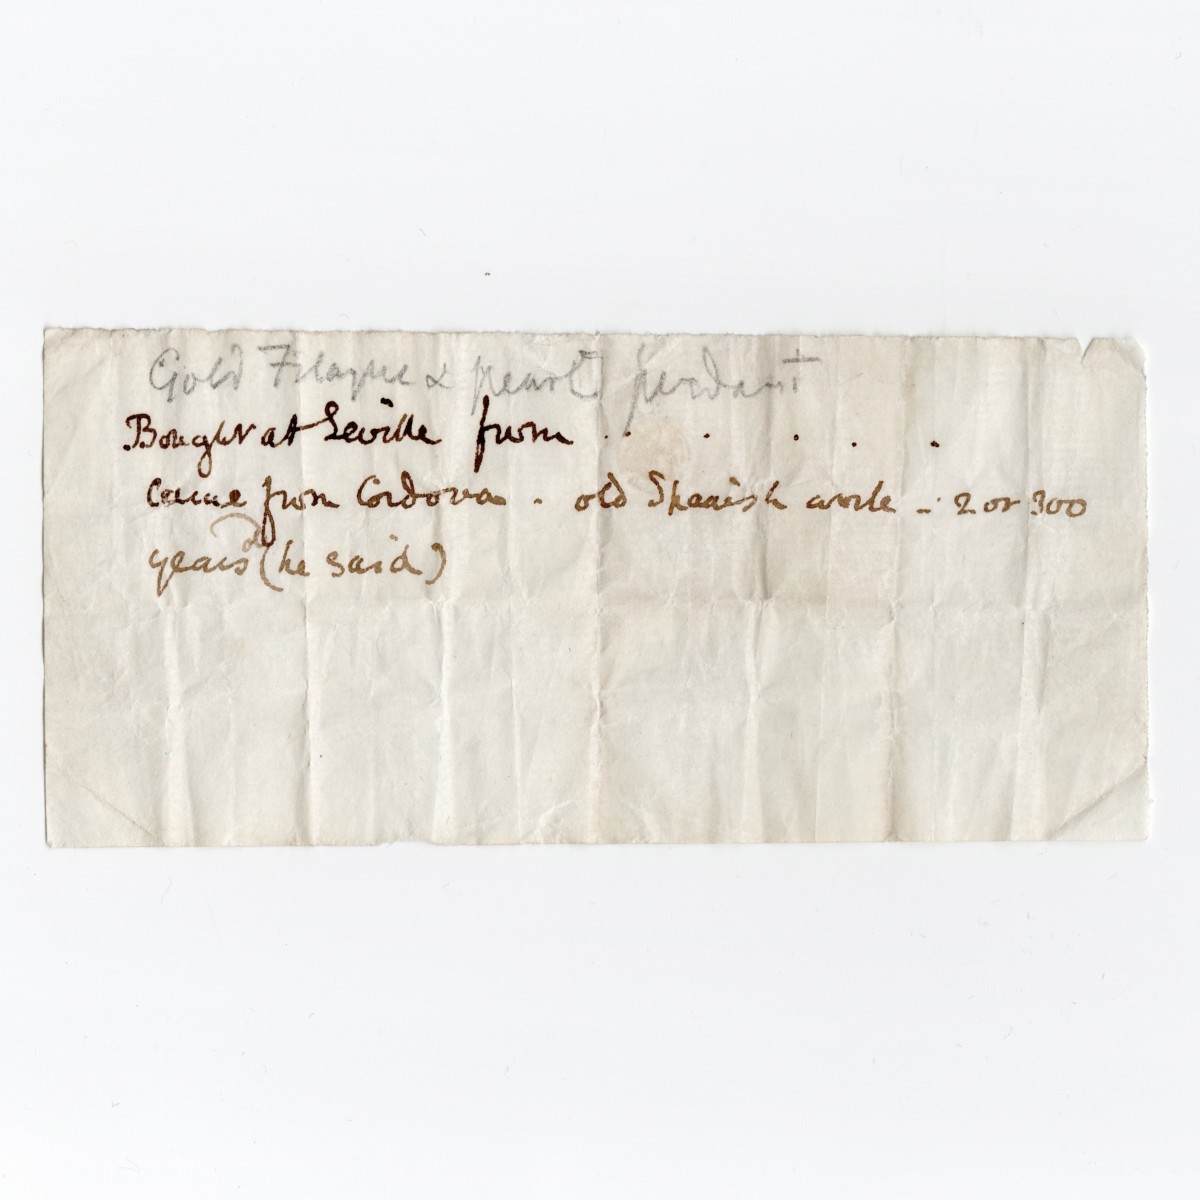 Gold Filagree & pearl pendant
Bought at Seville from . . . . . .
came from Cordova . old Spanish work - 2 or 300
years (he said)